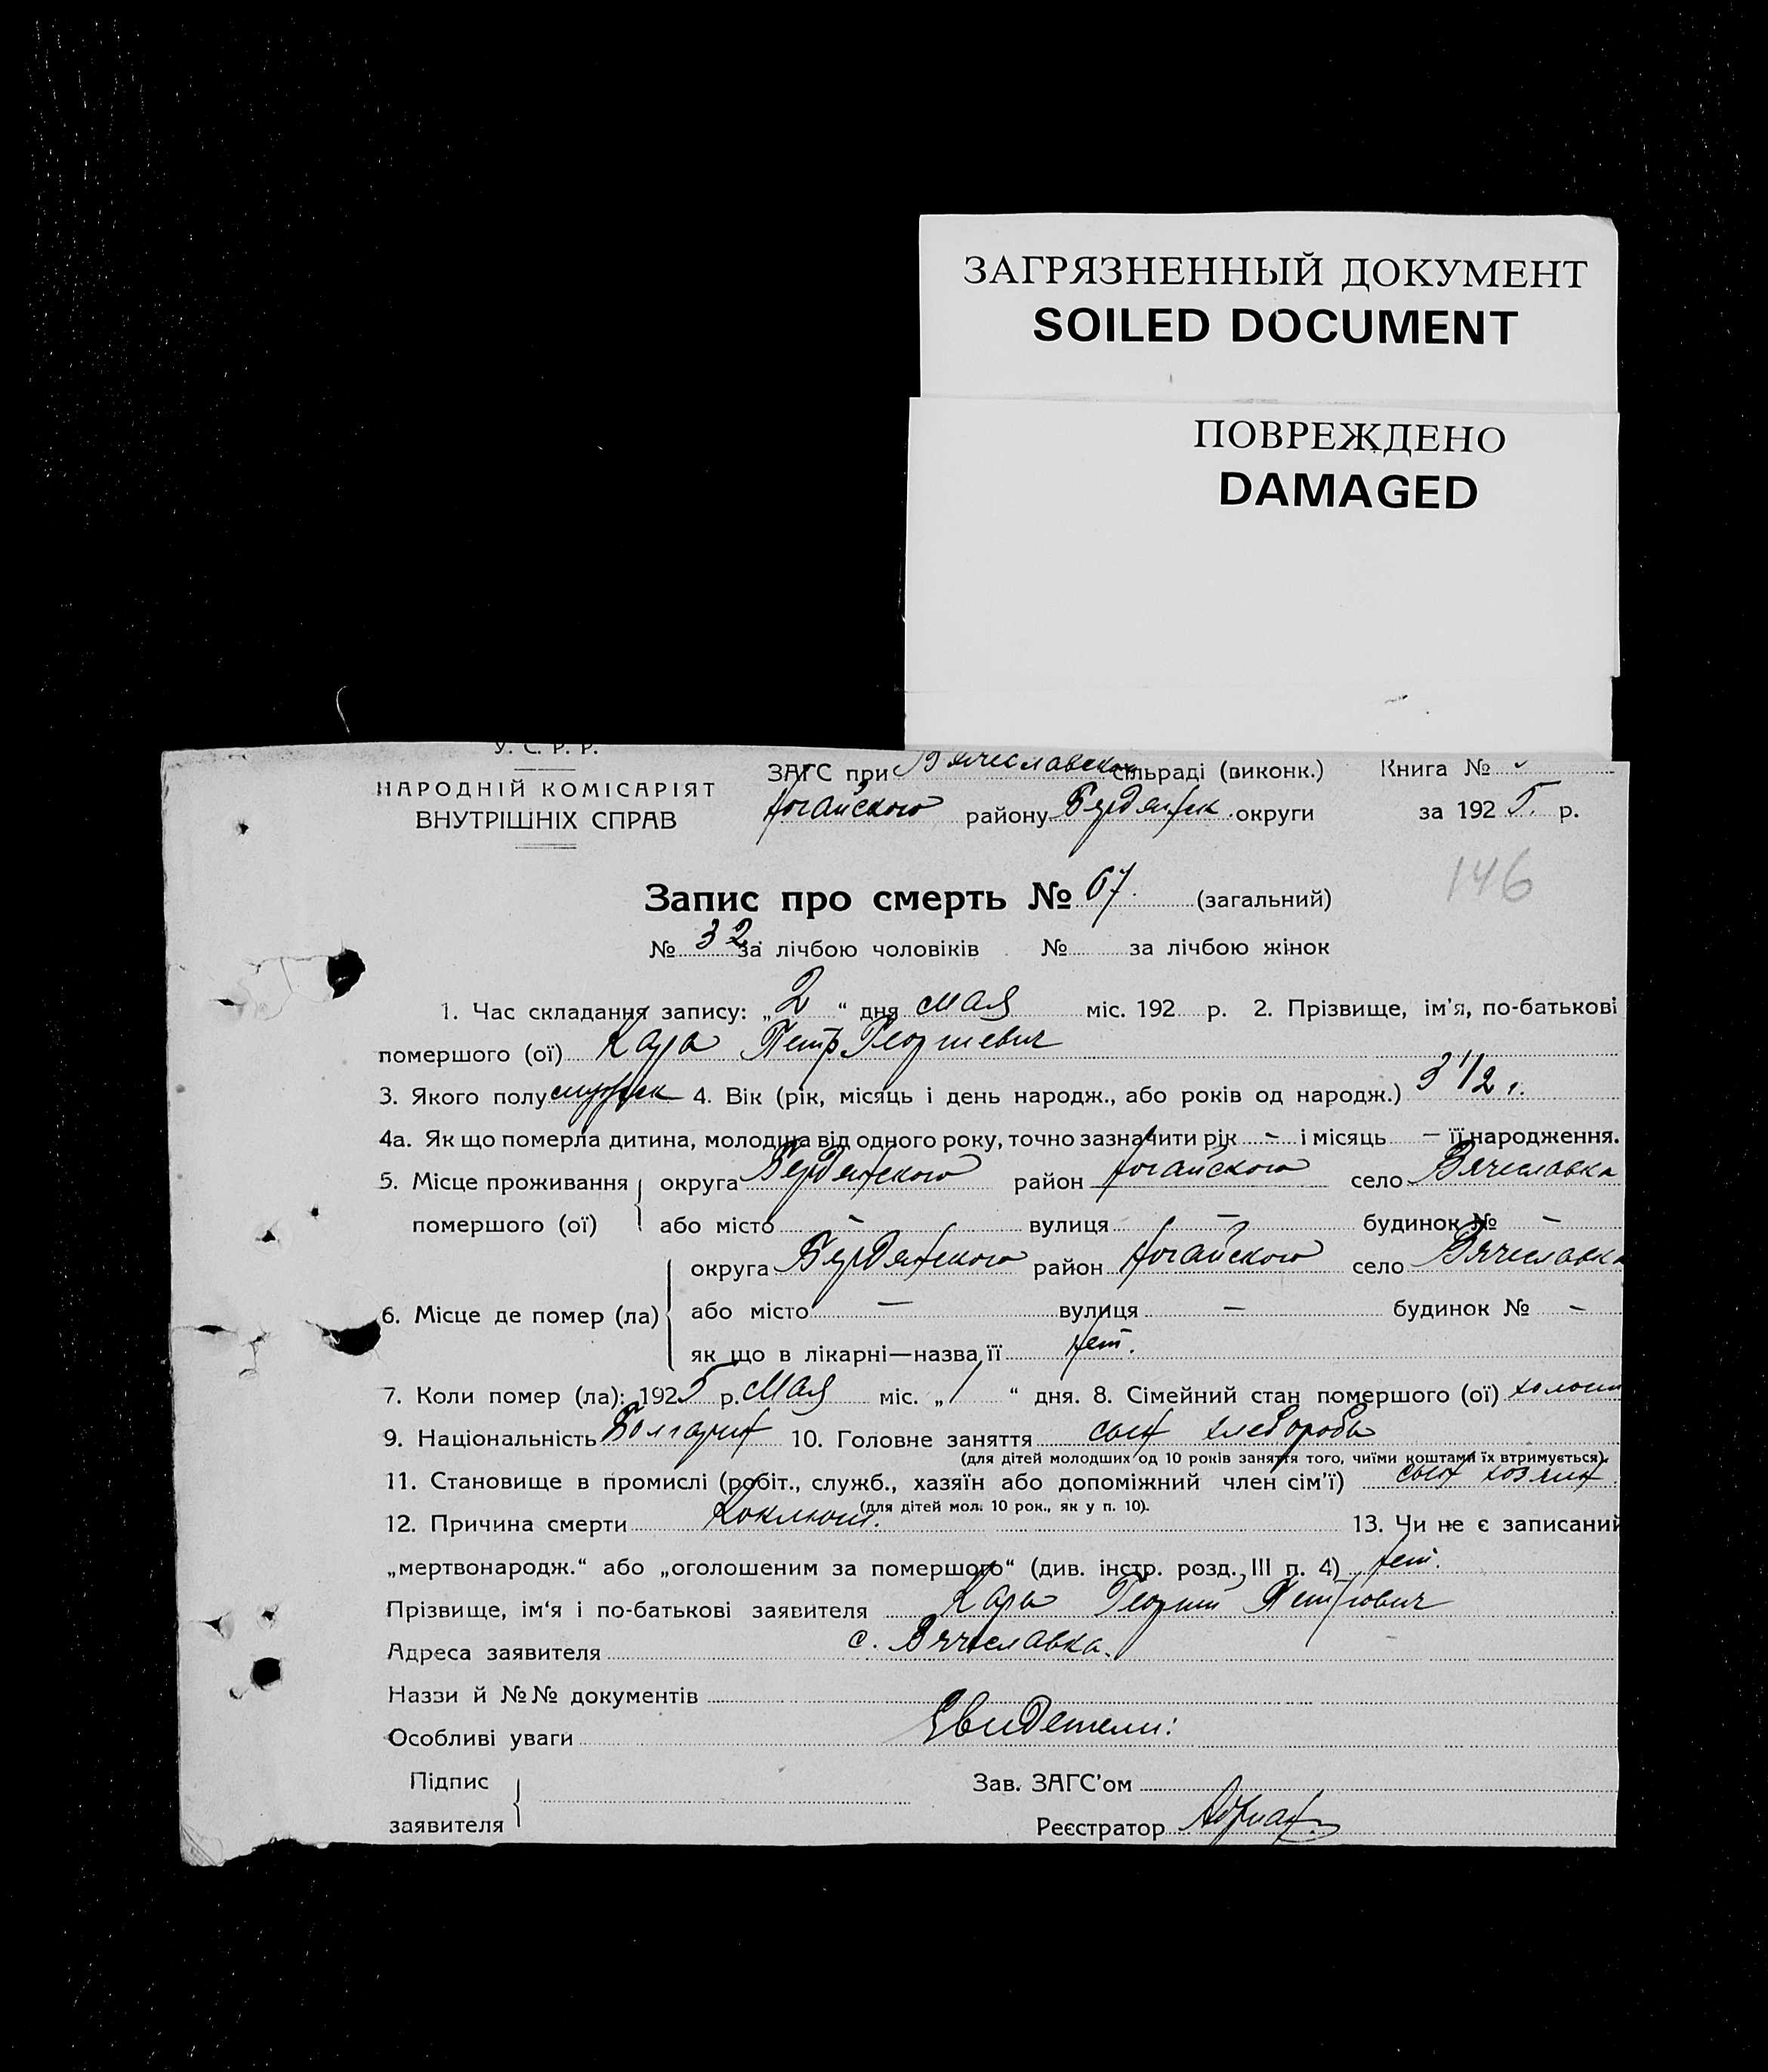 ЗАГРЯЗНЕННЫЙ ДОКУМЕНТ
SOILED DOCUMENT
ПОВРЕЖДЕНО
DAMAGED
У. С. Р. Р.
НАРОДНІЙ КОМІСАРІЯТ
ВНУТРІШНІХ СПРАВ
ЗАГС при Вячеславской сільраді (виконк.) Книга №
Ногайского району Бердянск. округи за 1925. р.
146
Запис про смерть № 67. (загальний)
№ 32 за лічбою чоловіків № за лічбою жінок
1. Час складання запису: „2“ дня мая міс. 192 р. 2. Прізвище, ім'я, по-батькові
помершого (ої) Кара Петр Георгиевич
3. Якого полу 4. Вік (рік, місяць і день народж., або років од народж.) 3 1/2 г.
4а. Як що померла дитина, молодша від одного року, точно зазначити рік – і місяць – її народження.
5. Місце проживання помершого (ої) округа Бердянского район Ногайского село Вячеславка
або місто – вулиця – будинок № –
6. Місце де помер (ла) округа Бердянского район Ногайского село Вячеславка
або місто – вулиця – будинок № –
як що в лікарні—назва її нет.
7. Коли помер (ла): 1925 р. мая міс. „1“ дня. 8. Сімейний стан помершого (ої) холост
9. Національність Болгарин 10. Головне заняття сын хлебороба
(для дітей молодших од 10 років заняття того, чиїми коштами їх втримується).
11. Становище в промислі (робіт., служб., хазяїн або допоміжний член сім'ї) сын хозяин
(для дітей мол. 10 рок., як у п. 10).
12. Причина смерти Коклюш. 13. Чи не є записаний
„мертвонародж.“ або „оголошеним за помершого“ (див. інстр. розд., III п. 4) нет.
Прізвище, ім'я і по-батькові заявителя Кара Георгий Петрович
Адреса заявителя с. Вячеславка.
Наззи й №№ документів
Особливі уваги Свидетели:
Підпис заявителя
Зав. ЗАГС'ом
Реєстратор